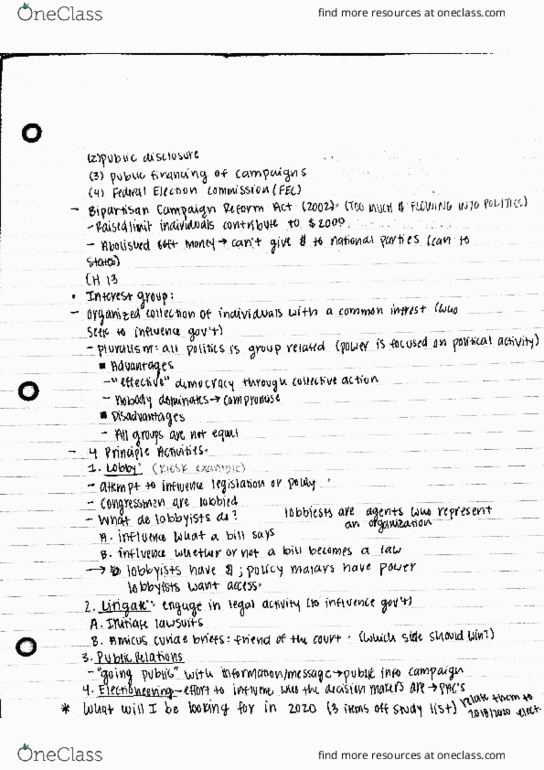 OneClass
find more resources at oneclass.com
(2) public disclosure
(3) public financing of campaigns
(4) Federal Election Commission (FEC)
- Bipartisan Campaign Reform Act (2002). (TOO MUCH $ FLOWING INTO POLITICS)
- Raised limit individuals contribute to $2000.
- Abolished soft money → can't give $ to national parties (can to
states)
CH 13
• Interest group:
- organized collection of individuals with a common intrest (who
seek to influence gov't)
- pluralism: all politics is group related (power is focused on political activity)
■ Advantages
- "effective" democracy through collective action
- Nobody dominates → compromise
■ Disadvantages
- All groups are not equal
- 4 Principle Activities.
1. Lobby: (Kiosk example)
- attempt to influence legislation or policy
- Congressmen are lobbied
- What do lobbyists do? lobbiests are agents who represent
an organization
A. influence what a bill says
B. influence whether or not a bill becomes a law
→ lobbyists have $; policy makers have power
lobbyists want access.
2. Litigate: engage in legal activity (to influence gov't)
A. Initiate lawsuits
B. Amicus curiae briefs: friend of the court. (which side should win?)
3. Public Relations
- "going public" with information/message → public info campaign
4. Electioneering - effort to influence who the decision makers are → PAC's
* What will I be looking for in 2020 (3 items off study list) relate them to
2018/2020 elect.
OneClass
find more resources at oneclass.com